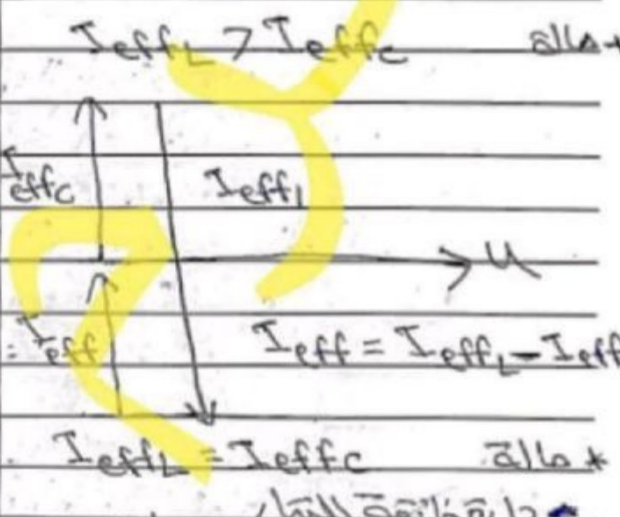 I effL > I effC حالة *
I effC I effL
u
I eff I eff = I effL - I eff
I effL = I effC حالة *